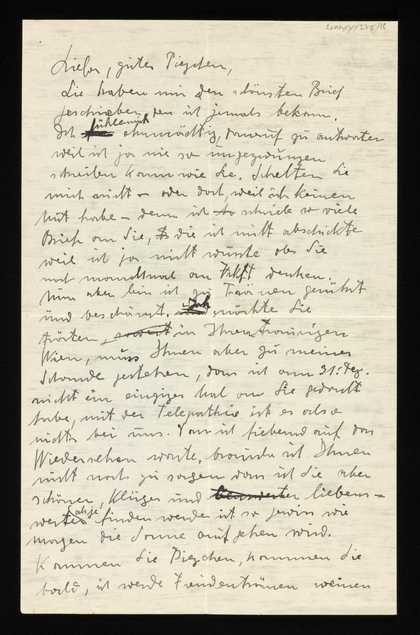 Liebes, gutes Piezchen,
Sie haben mir den schönsten Brief
geschrieben, den ich jemals bekam.
Ich fühle mich ohnmächtig, darauf zu antworten
weil ich ja nie so ungezwungen
schreiben kann wie Sie. Schelten Sie
mich nicht – oder doch, weil ich keinen
Mut habe – denn ich schrieb so viele
Briefe an Sie, die ich nicht abschickte
weil ich ja nicht wusste ob Sie
noch manchmal an denken.
Nun aber bin ich zu Tränen gerührt
und beschämt, Ich möchte Sie
trösten, in Ihrem traurigen
Wien, muss Ihnen aber zu meiner
Schande gestehen, dass ich am 31. Dez.
nicht ein einziges Mal an Sie gedacht
habe, mit der Telepathie ist es also
nichts bei uns. Dass ich fiebernd auf das
Wiedersehen warte, brauche ich Ihnen
nicht noch zu sagen dass ich Sie aber
schöner, klüger und liebens-
werter finden werde ist so gewiss wie
morgen die Sonne aufgehen wird.
Kommen Sie Piezchen, kommen Sie
bald, ich werde Freudentränen weinen